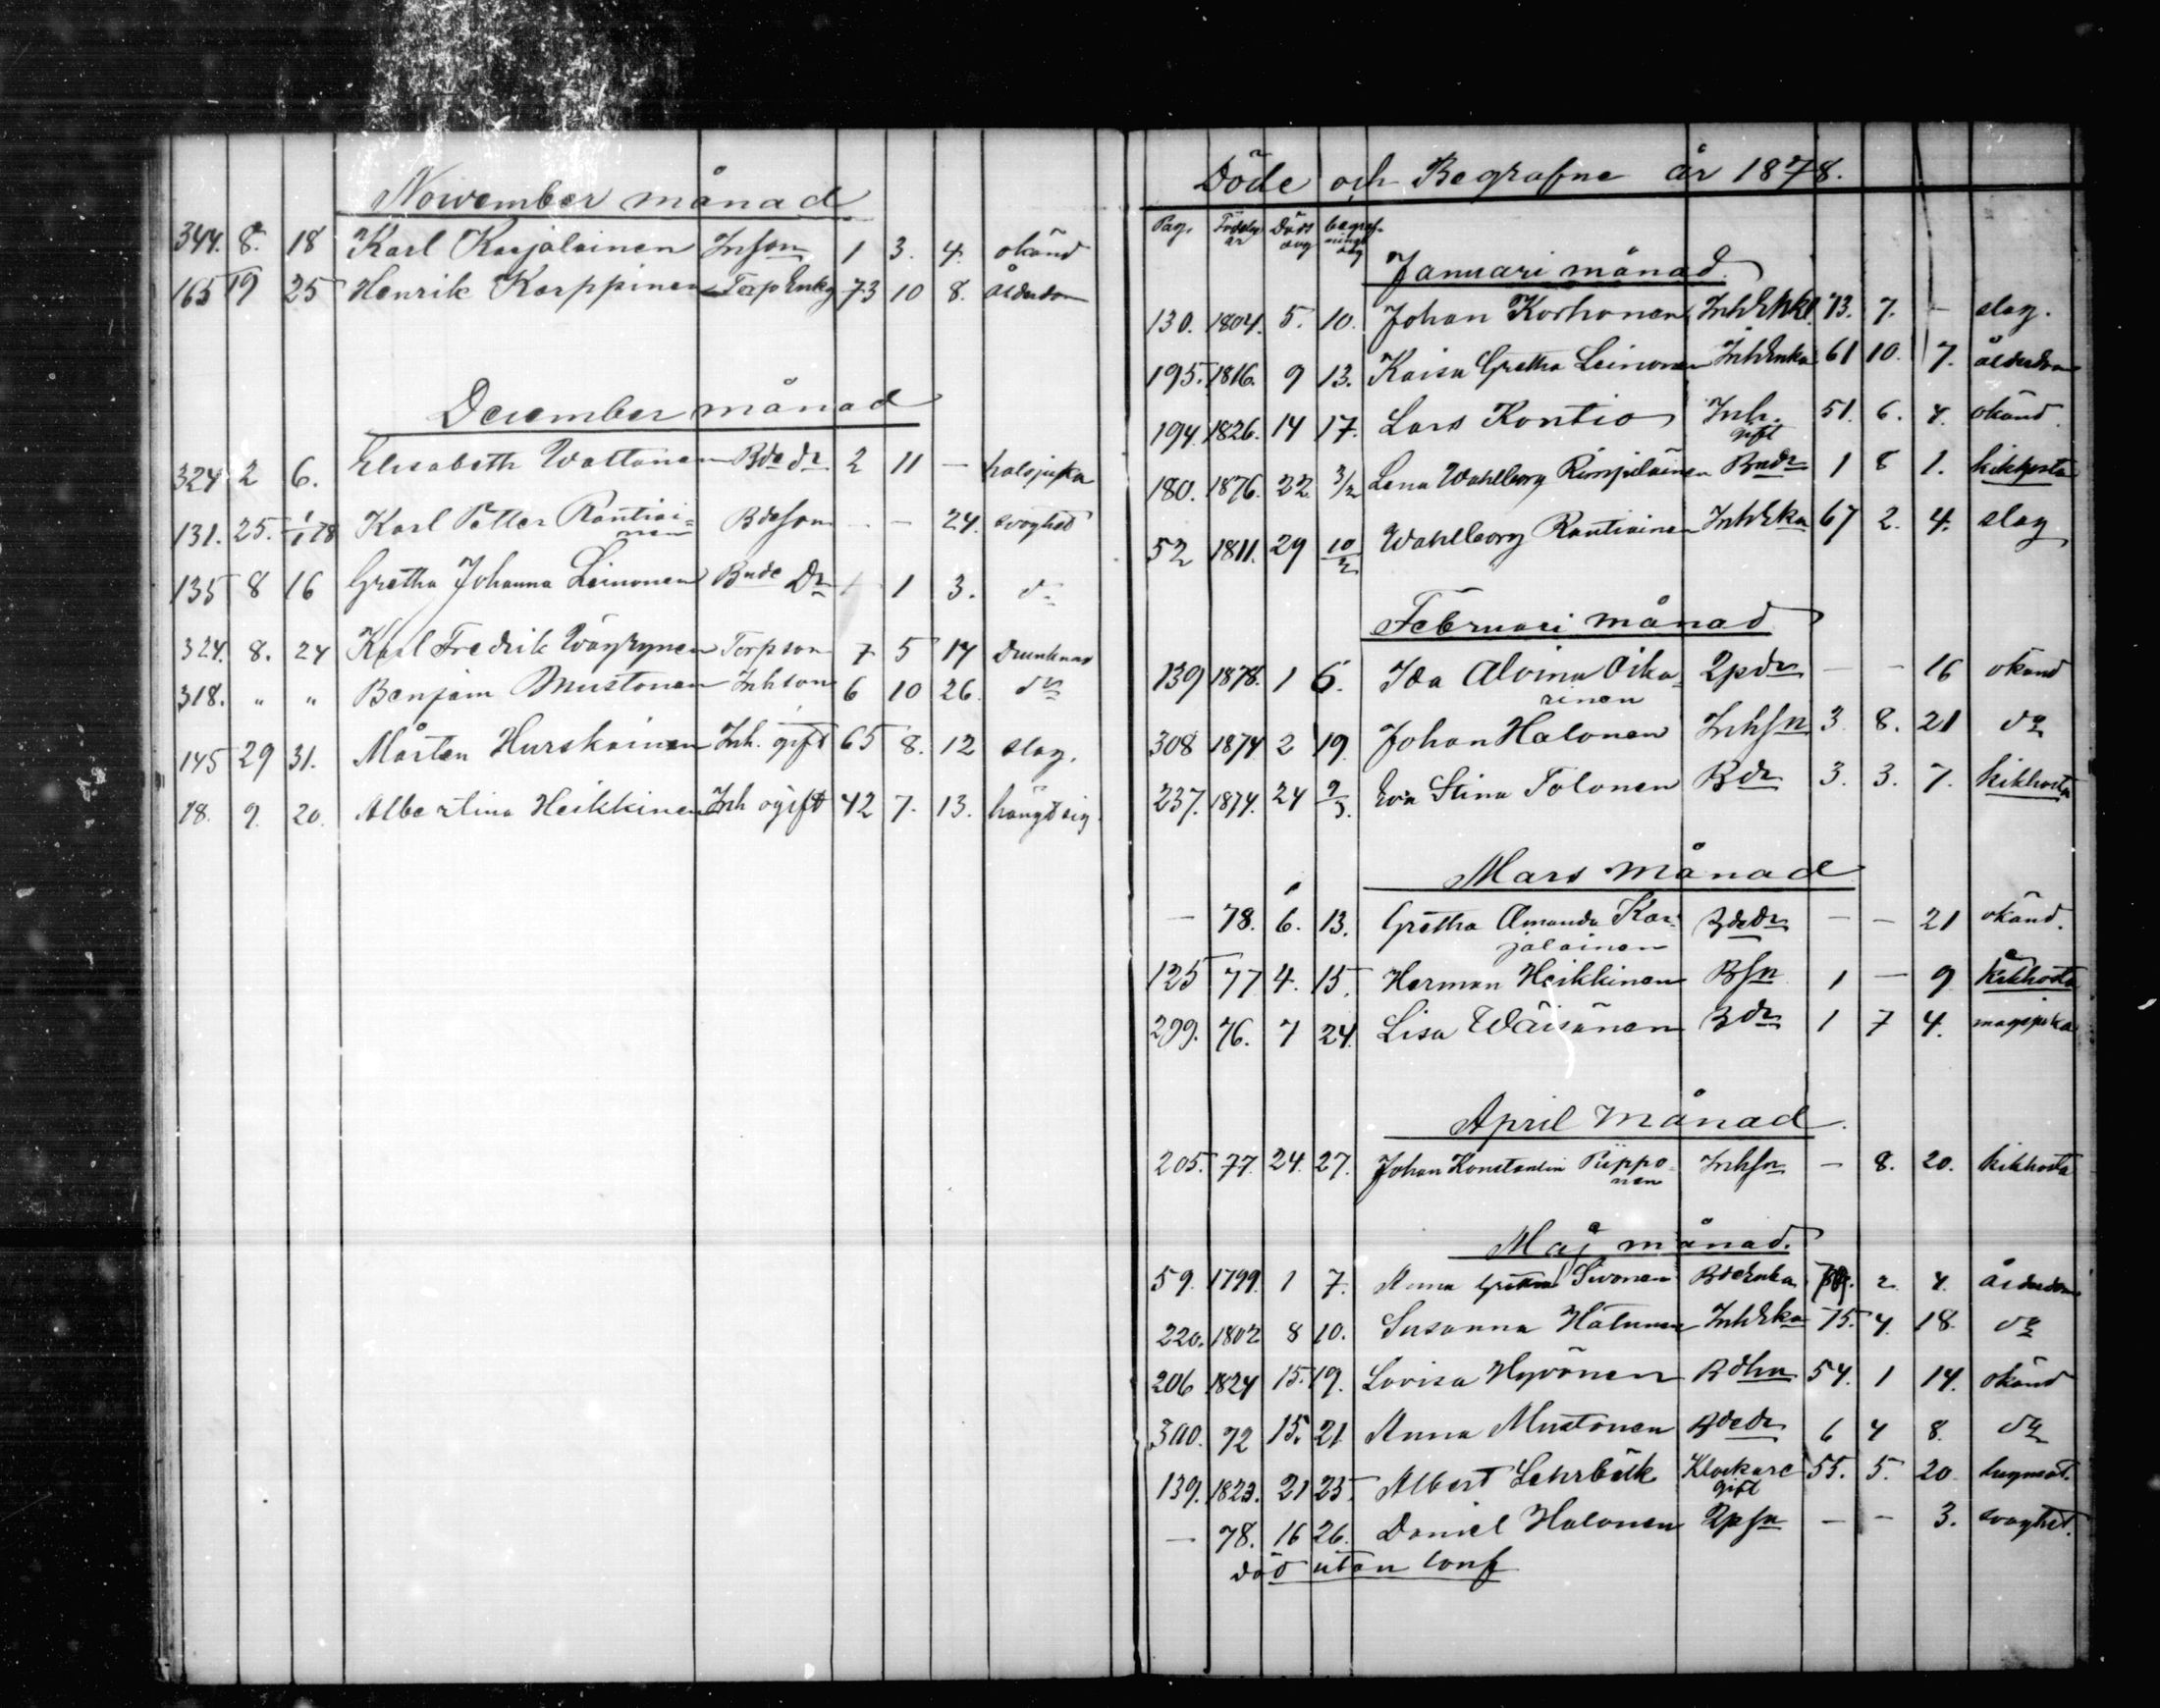 Nowember månad
344. 8. 18 Karl Karjalainen Inhson 1 3. 4. okänd
165 19 25 Henrik Karppinen Torp Enkg 73 10 8. ålderdom
December månad
324 2 6. Elisabeth Wattanen Bde dr 2 11 — halsjuka
131. 25. 1/1 78 Karl Petter Rautiai=
nen Bdeson - - 24. svaghet
135 8 16 Gretha Johanna Leinonen Bnde Dr 1 1 3. do
324. 8. 24 Karl Fredrik Wäyrynen Torpson 7 5 14 Drunknad
318. " " Benjam Mustonen Inhson 6 10 26. do
145 29 31. Mårten Hurskainen Inh. gift 65 8. 12 slag.
18. 9. 20. Albertina Heikkinen Inh ogift 42 7. 13. hängt sig.
Döde och Begrafne år 1878.
Pag. Födelse år Döds dag begrafnings dag
Januari månad.
130. 1804. 5. 10. Johan Korhonen InhEnkl 73. 7. — slag.
195. 1816. 9 13. Kaisa Gretha Leinonen InhEnka 61 10. 7. ålderdom
194. 1826. 14 17. Lars Kontio Inh. 51. 6. 4. okänd.
gift
180. 1876. 22 3/2 Lena Wahlborg Rimpiläinen Bndr 1 8 1. kikhosta
52 1811. 29 10/2 Wahlborg Rautiainen InhEka 67 2. 4. slag
Februari månad
139 1878. 1 6. Ida Alvina Oika=
rinen 2pdr — — 16 okänd
308 1874 2 19 Johan Halonen Inhsn 3. 8. 21 do
237. 1874. 24 9/3. Eva Stina Tolonen Bdr 3. 3. 7. kikhosta
Mars månad
— 78. 6. 13. Gretha Amanda Kar=
jalainen Bdedr — — 21 okänd.
125 77 4. 15. Herman Heikkinen Bsn 1 — 9 kikhosta
299. 76. 7 24. Lisa Wäisänen Bdr 1 7 4. magsjuka
April månad.
205. 77. 24. 27. Johan Konstantin Piippo=
nen Inhsn — 8. 20. kikhosta
Maj månad.
59. 1799. 1 7. Anna Gretha Sivonen BdeEnka 2 4. ålderdom
220. 1802 8 10. Susanna Hätunen InhEka 75. 4. 18. do
206 1824 15. 19. Lovisa Hyvönen Bdhu 54. 1 14. okänd
300. 72 15. 21 Anna Mustonen Bdedr 6 4 8. do
139. 1823. 21 25. Albert Lehrbäk Klockare 55. 5. 20
gift
— 78. 16 26. Daniel Halonen 2psn — — 3. svaghet.
död utan